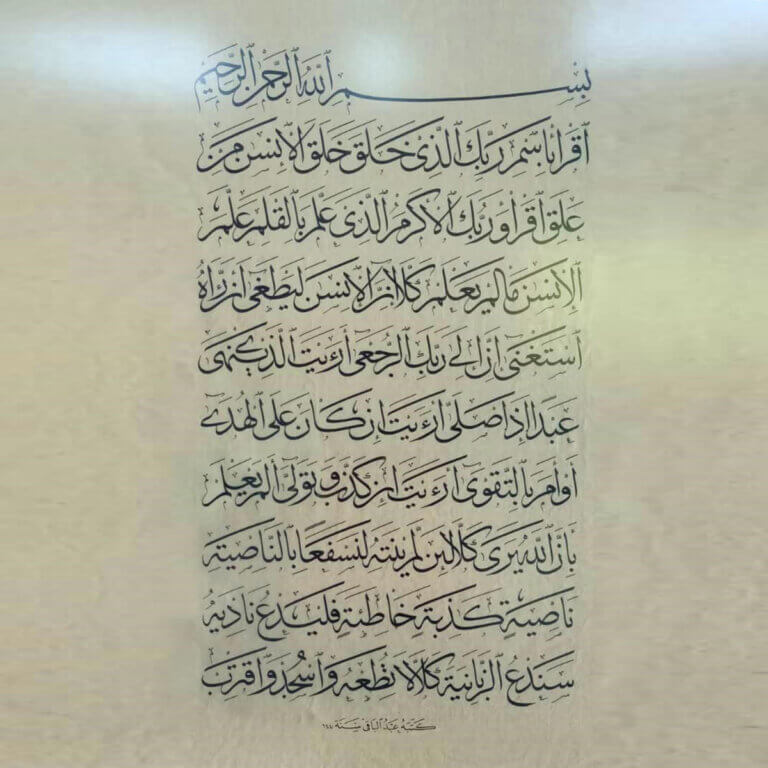 بِسْمِ ٱللَّهِ ٱلرَّحْمَٰنِ ٱلرَّحِيمِ
ٱقْرَأْ بِٱسْمِ رَبِّكَ ٱلَّذِى خَلَقَ خَلَقَ ٱلْإِنسَٰنَ مِنْ
عَلَقٍ ٱقْرَأْ وَرَبُّكَ ٱلْأَكْرَمُ ٱلَّذِى عَلَّمَ بِٱلْقَلَمِ عَلَّمَ
ٱلْإِنسَٰنَ مَا لَمْ يَعْلَمْ كَلَّا إِنَّ ٱلْإِنسَٰنَ لَيَطْغَىٰ أَن رَّءَاهُ
ٱسْتَغْنَىٰ إِنَّ إِلَىٰ رَبِّكَ ٱلرُّجْعَىٰ أَرَءَيْتَ ٱلَّذِى يَنْهَىٰ
عَبْدًا إِذَا صَلَّىٰ أَرَءَيْتَ إِن كَانَ عَلَى ٱلْهُدَىٰ
أَوْ أَمَرَ بِٱلتَّقْوَىٰ أَرَءَيْتَ إِن كَذَّبَ وَتَوَلَّىٰ أَلَمْ يَعْلَم
بِأَنَّ ٱللَّهَ يَرَىٰ كَلَّا لَئِن لَّمْ يَنتَهِ لَنَسْفَعًا بِٱلنَّاصِيَةِ
نَاصِيَةٍ كَٰذِبَةٍ خَاطِئَةٍ فَلْيَدْعُ نَادِيَهُ
سَنَدْعُ ٱلزَّبَانِيَةَ كَلَّا لَا تُطِعْهُ وَٱسْجُدْ وَٱقْتَرِب
كتبه عبد الباقي سنة